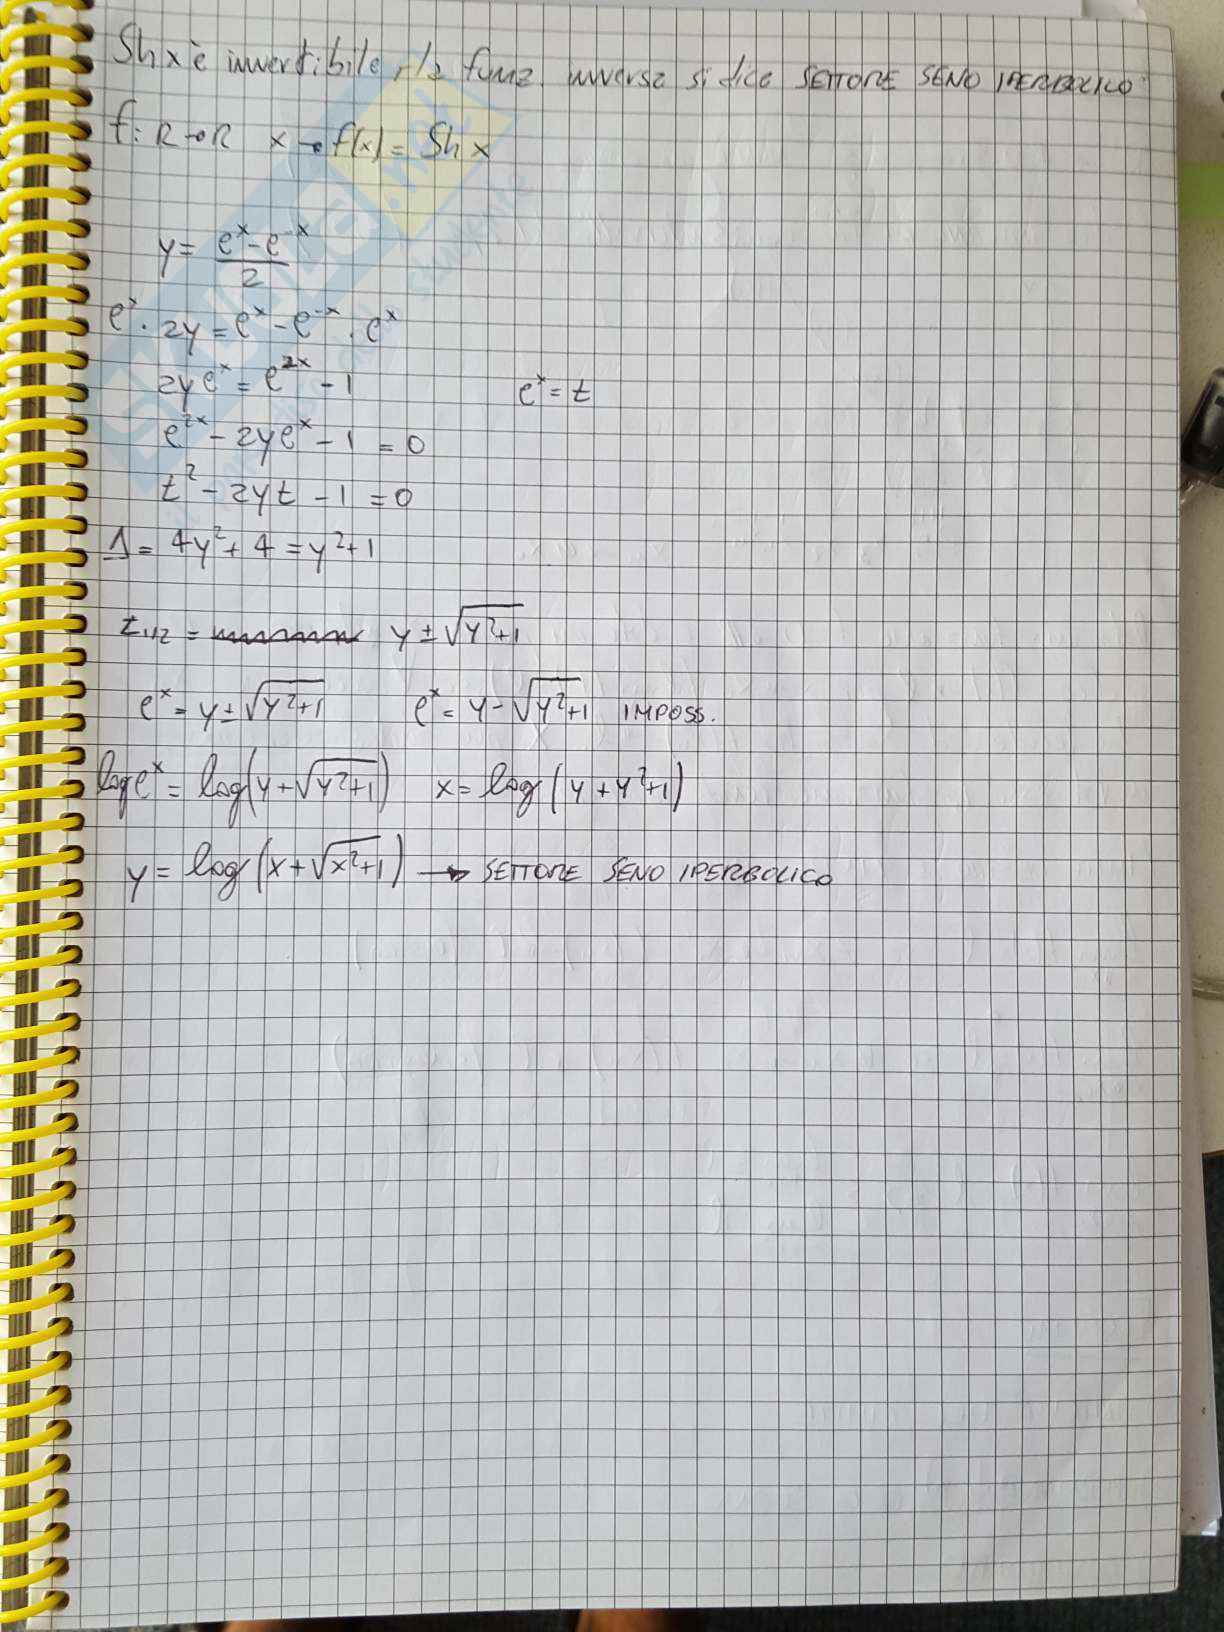 Sh x è invertibile, la funz. inversa si dice SETTORE SENO IPERBOLICO
f: R→R x→f(x) = Sh x
y = (e^x - e^-x)/2
e^x · 2y = e^x - e^-x · e^x
2y e^x = e^2x - 1 e^x = t
e^2x - 2y e^x - 1 = 0
t² - 2yt - 1 = 0
Δ = 4y² + 4 = y² + 1
t1/2 = y ± √(y²+1)
e^x = y ± √(y²+1) e^x = y - √(y²+1) IMPOSS.
log e^x = log(y + √(y²+1)) x = log(y + y²+1)
y = log(x + √(x²+1)) → SETTORE SENO IPERBOLICO
SKUOLA.net